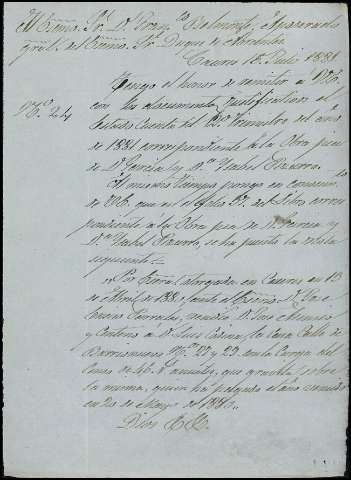 Al Excmo. Sr. Dn. Franco. Belmonte, Apoderado
gral. del Excmo. Sr. Duque de Abrantes
Caceres 18 Julio 1881
No. 24
Tengo el honor de remitir a V.E.
con los documentos justificativos el
Estado Cuenta del 2o. trimestre del año
de 1881 correspondiente de la Obra pia
de Dn. García y Da. Isabel Pizarro.
Al mismo tiempo pongo en conocim.to
de V.E. que en el folio 27 del Libro corres
pondiente á la Obra pia de Dn. Garcia y
Da. Isabel Pizarro, se ha puesto la nota
siguiente.=
"Por otorgada en Caceres en 13
de Abril de 188 ante el Dn. José
vendió Dn. José
y á Dn. Luis la Casa Calle de
Barrionuevo No. 21 y 23 con la Carga del
Censo de 46. anuales, que gravita sobre
la misma, quien ha pagado el año vencido
en 20 de Mayo de 1881.
Dios &&.